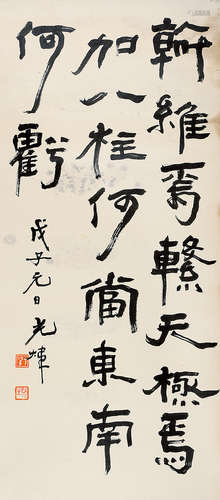 斡維焉繫天極焉
加八柱何當東南
何虧
戊子元日光煒